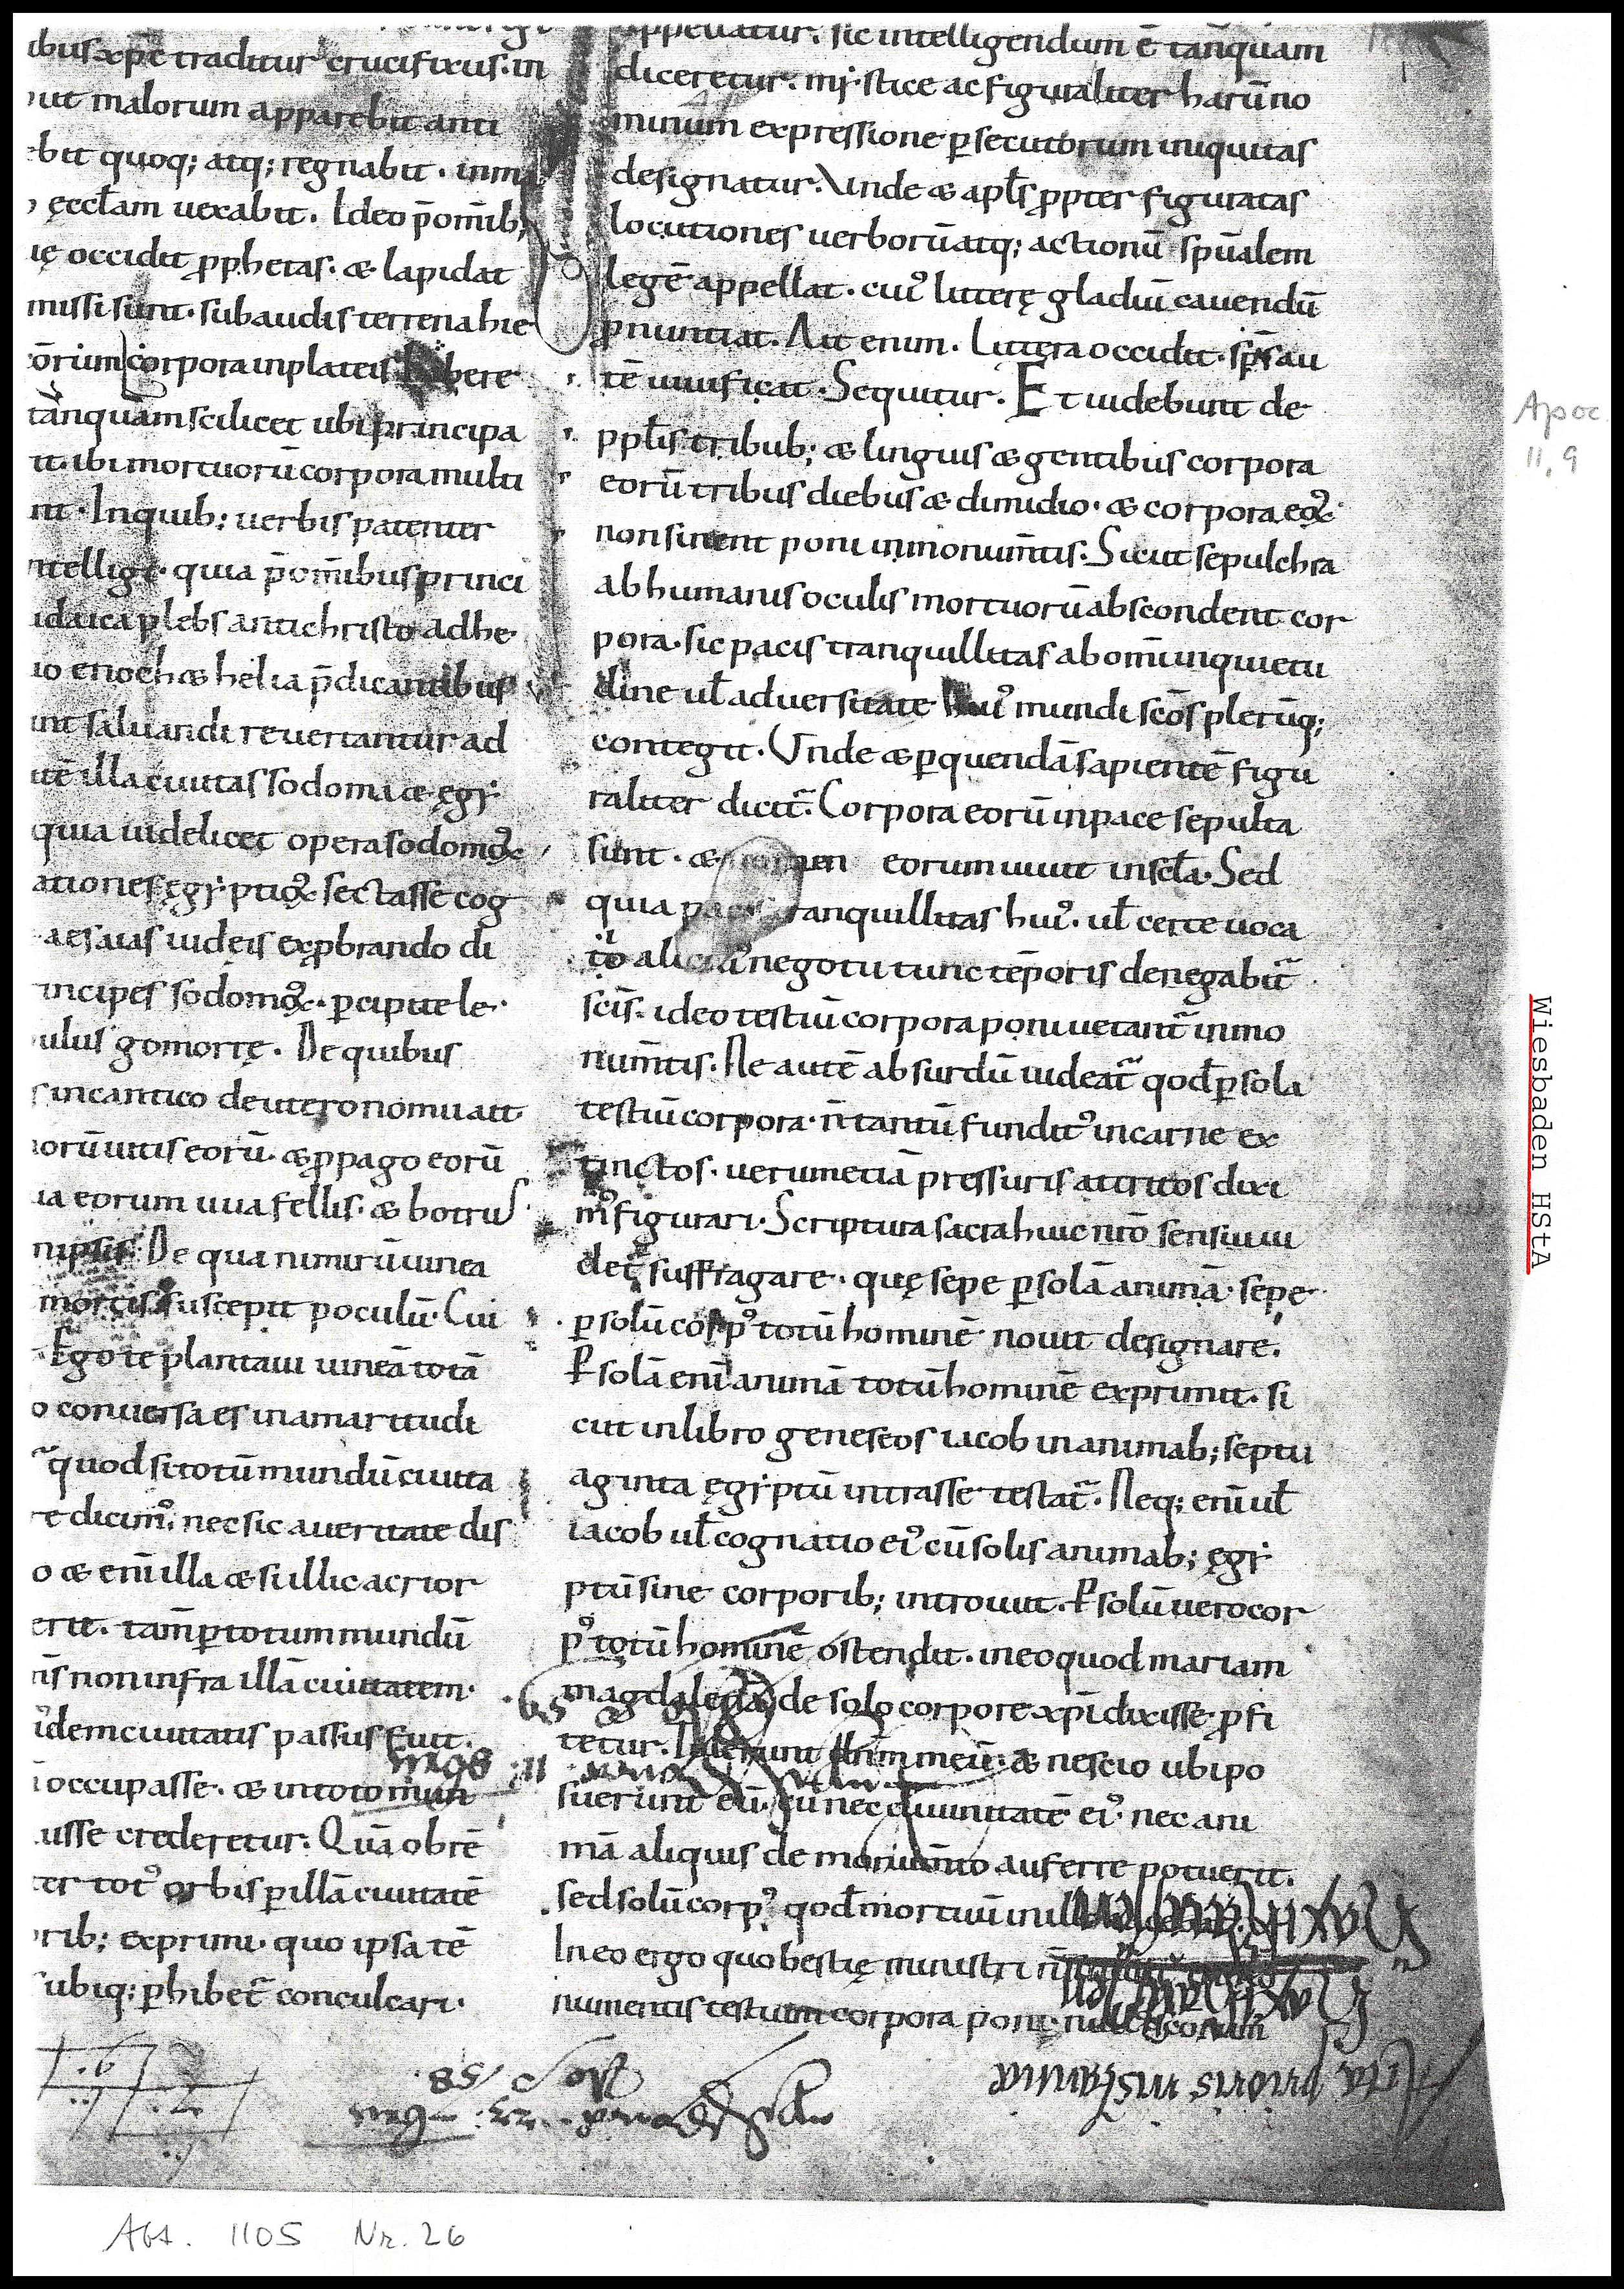 ibus xp̄c traditur crucifixus. in
put malorum apparebit anti
ebit quoq; atq; regnabit. inm
ęccl̄am uexabit. Ideo p̄ om̄ib;
ię occidit ꝓphetas. & lapidat
missi sunt. subaudis terrena hie
corpora in plateis
tanquam scilicet ubi principa
it. ibi mortuorū corpora multi
nt. In quib; uerbis patenter
ntellige. quia p̄ om̄ibus princi
idaica plebs antichristo adhe
io enoch & helia p̄dicantibus
unt saluandi reuertantur ad
utē illa ciuitas sodoma & ęgi
quia uidelicet opera sodomoꝝ
ationes ęgiptioꝝ sectasse cog
aesaias iudeis exꝓbrando di
incipes sodomoꝝ. ꝑcipite le
ulus gomorrę. De quibus
s in cantico deuteronomii ait
norū uitis eorū. & ꝓpago eorū
ua eorum uua fellis. & botrus
De qua nimirū uinea
mortis suscepit poculū. Cui
Ego te plantaui uineā totā
o conuersa es in amaritudi
quod si totū mundū ciuita
re dicimꝰ. nec sic a ueritate dis
o & eni illa & si illic acrior
erit. tam̄ ꝑ totum mundū
ris non infra illā ciuitatem
idem ciuitatis passus fuit.
occupasse. & in toto mun
usse crederetur. Quā ob rē
ter totꝰ orbis ꝑ illā ciuitatē
rib; exprimi. quo ipsa tē
ubiq; ꝑhibet̄ conculcari.
appellatur. sic intelligendum ē tanquam
diceretur. mistice ac figuraliter harū no
minum expressione ꝑsecutorum iniquitas
designatur. Unde & apl̄s ꝓpter figuratas
locutiones uerborū atq; actionū sp̄ualem
legē appellat. cuiꝰ litterę gladiū cauendū
ꝓnuntiat. Ait enim. Littera occidit. sp̄s au
tē uiuificat. Sequitur. Et uidebunt de
ppl̄is tribub; & linguis & gentibus corpora
eorū tribus diebus & dimidio. & corpora eoꝝ
non sinent poni in monum̄tis. Sicut sepulchra
ab humanis oculis mortuorū abscondent cor
pora. sic pacis tranquillitas ab om̄i inquietu
dine ul̄ aduersitate huiꝰ mundi sc̄os plerūq;
contegit. Unde & ꝑ quendā sapientē figu
raliter dicit̄. Corpora eorū in pace sepulta
sunt. & nomen eorum uiuit in sc̄la. Sed
quia pacis tranquillitas huiꝰ. ul̄ certe uoca
tio alicuiꝰ negotii tunc tēporis denegabit̄
sc̄is. ideo testiū corpora poni uetant̄ in mo
num̄tis. Ne autē absurdū uideat̄ qod̄ ꝑ sola
testiū corpora. n̄ tantū funditꝰ in carne ex
tinctos. uerum etiā pressuris attritos dixi
mꝰ figurari. Scriptura sacra huic nr̄o sensui ui
det̄ suffragare. quę sepe ꝑ solā animā. sepe
ꝑ solū corpꝰ totū hominē nouit designare.
Ꝑ solā eni animā totū hominē exprimit. si
cut in libro geneseos iacob in animab; septu
aginta ęgiptū intrasse testat̄. Neq; eni ul̄
iacob ul̄ cognatio eiꝰ cū solis animab; ęgi
ptū sine corporib; introiuit. Ꝑ solū uero cor
pꝰ totū hominē ostendit. in eo quod mariam
magdalenā de solo corpore xp̄i dixisse ꝓfi
tetur. Tulerunt dn̄m meū. & nescio ubi po
suerunt eū. cū nec diuinitatē eiꝰ. nec ani
mā aliquis de monum̄to auferre potuerit.
sed solū corpꝰ. qod̄ mortuū in illo iacebat.
In eo ergo quo bestię ministri
numentis testium corpora poni
Acta prioris instantiæ
Apoc.
11, 9
Wiesbaden HStA
Abt. 1105 Nr. 26